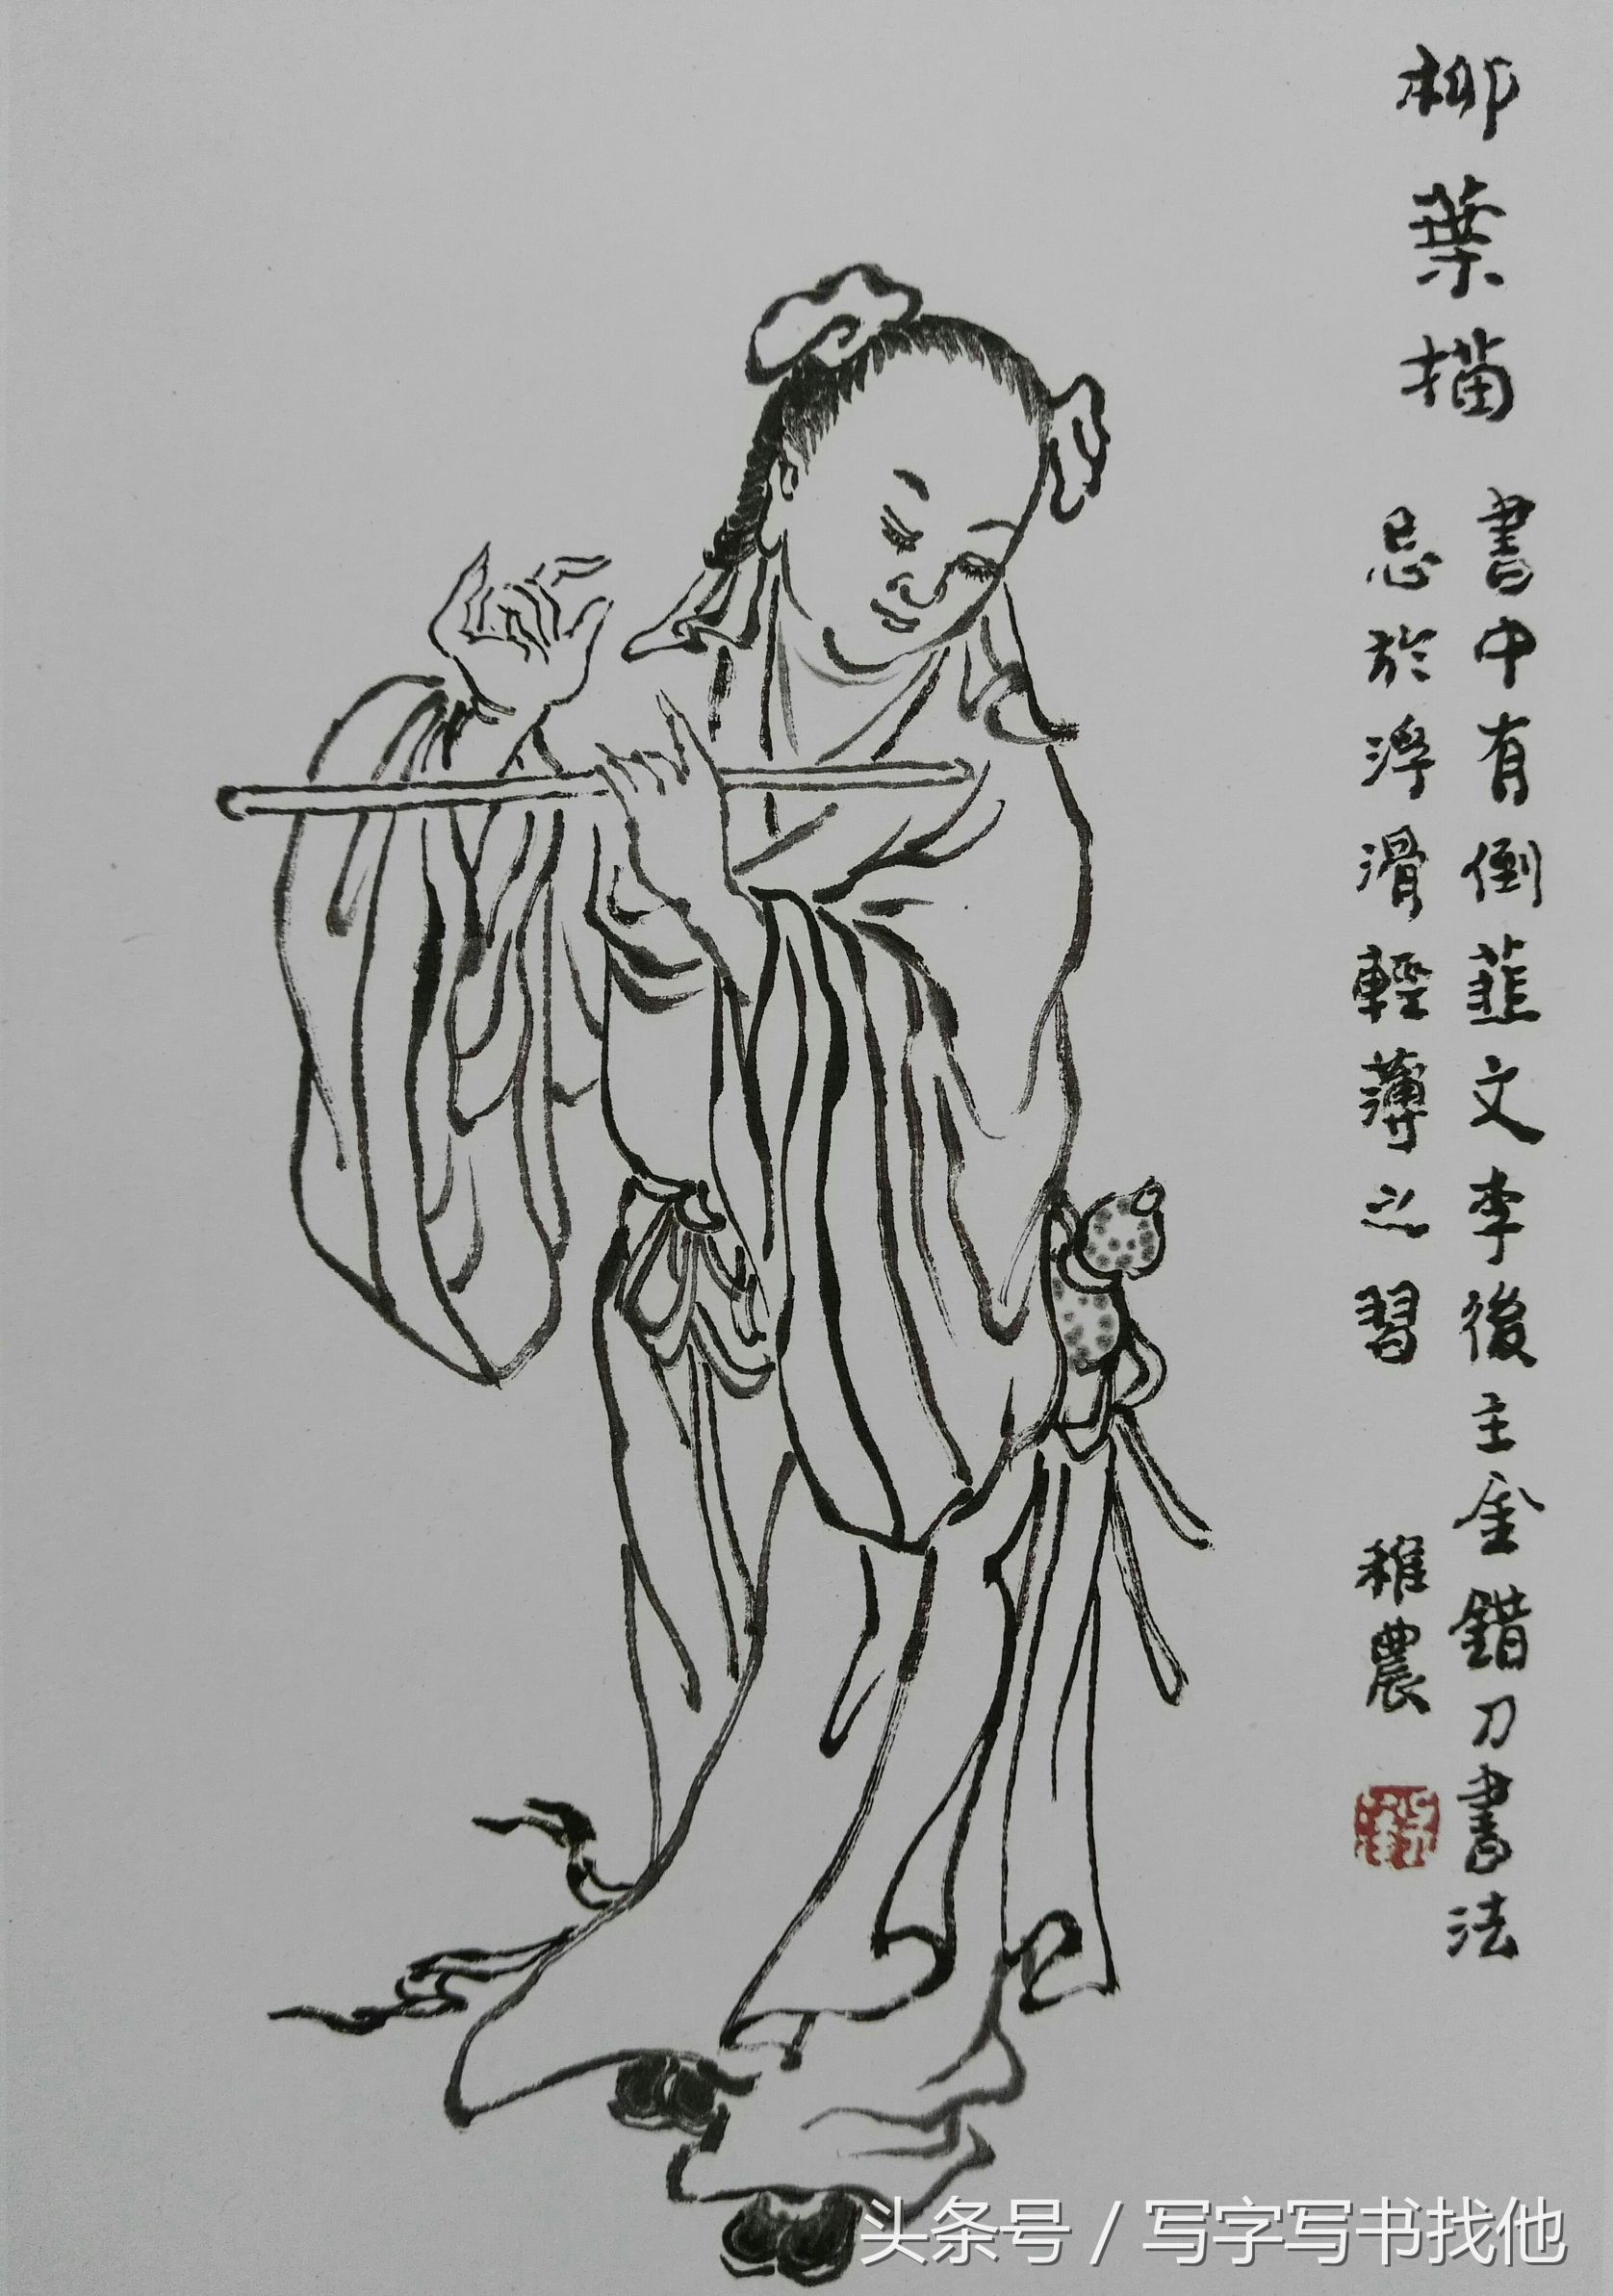 柳葉描
書中有倒薤文李後主金錯刀書法
忌於浮滑輕薄之習
稚農
头条号 / 写字写书找他